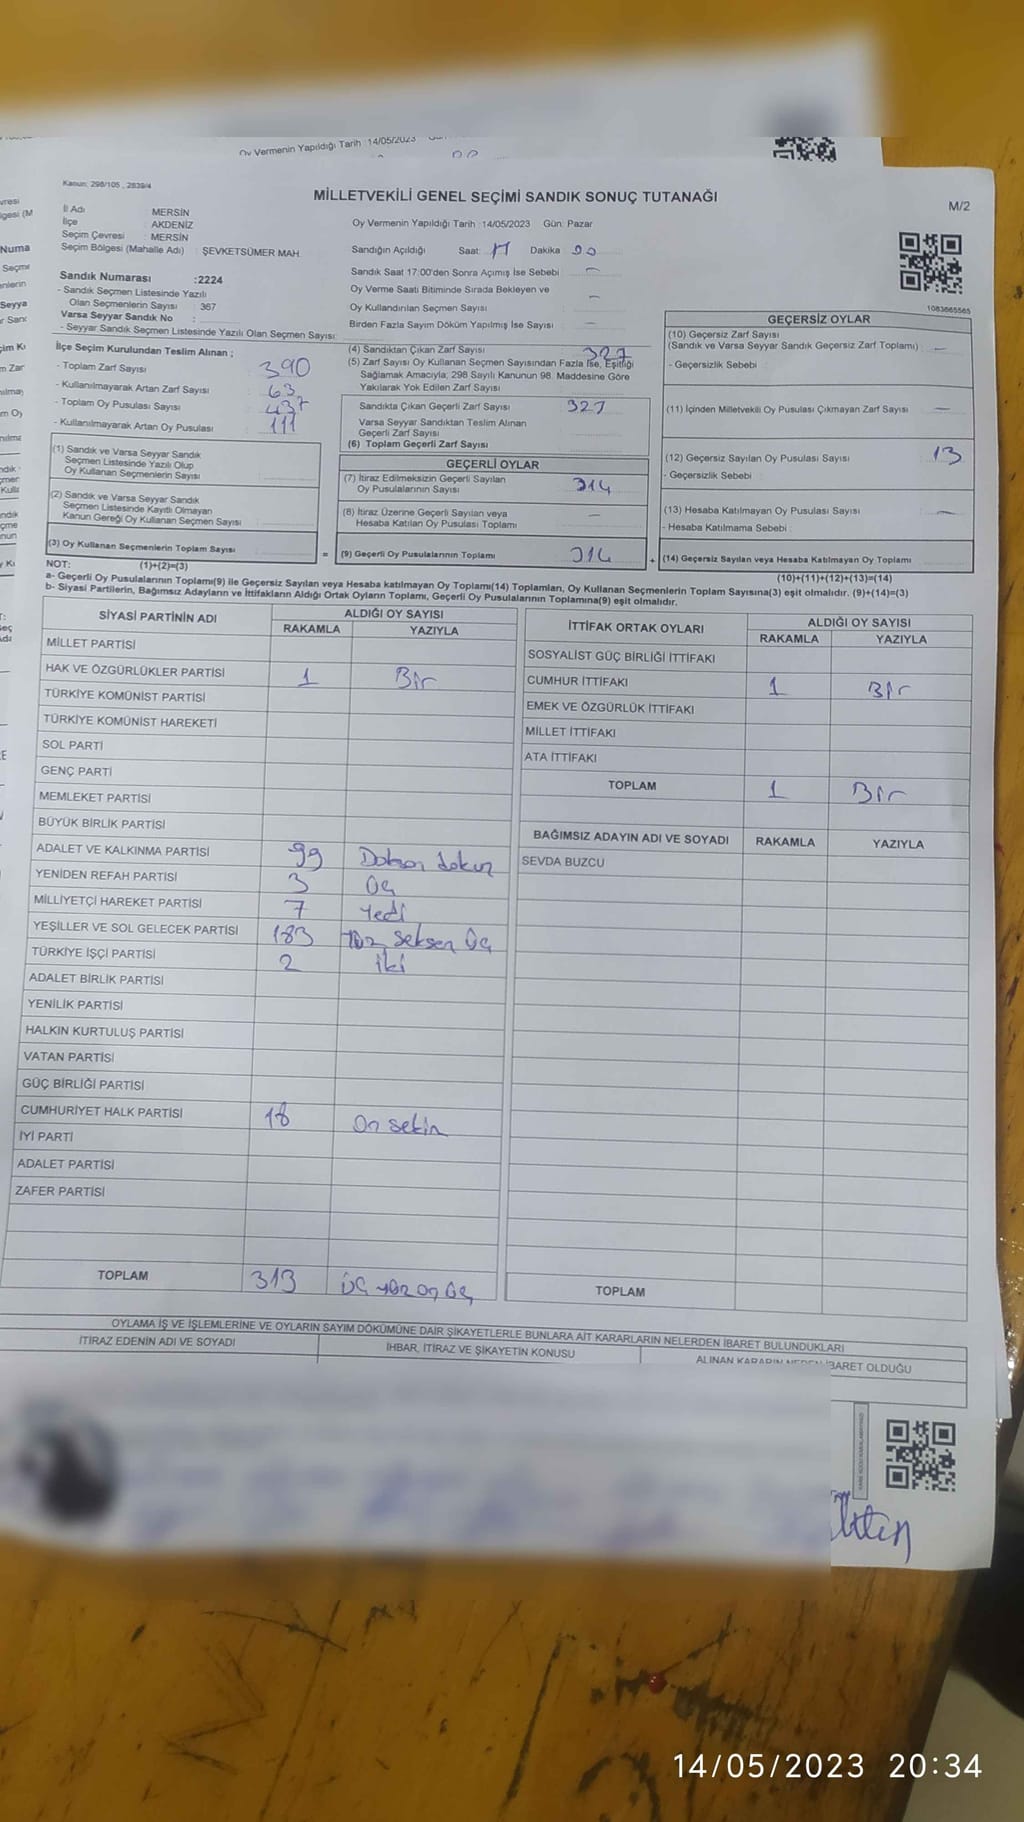 Oy Vermenin Yapıldığı Tarih :14/05/2023
Kanun: 298/105 , 2839/4
MİLLETVEKİLİ GENEL SEÇİMİ SANDIK SONUÇ TUTANAĞI
M/2
İl Adı : MERSİN
İlçe : AKDENİZ
Seçim Çevresi : MERSİN
Seçim Bölgesi (Mahalle Adı) : ŞEVKETSÜMER MAH.
Oy Vermenin Yapıldığı Tarih :14/05/2023 Gün: Pazar
Sandığın Açıldığı Saat: 17 Dakika 00
Sandık Saat 17:00'den Sonra Açımış İse Sebebi —
Oy Verme Saati Bitiminde Sırada Bekleyen ve
Oy Kullandırılan Seçmen Sayısı —
Birden Fazla Sayım Döküm Yapılmış İse Sayısı —
1083665565
Sandık Numarası :2224
- Sandık Seçmen Listesinde Yazılı
Olan Seçmenlerin Sayısı : 367
Varsa Seyyar Sandık No :
- Seyyar Sandık Seçmen Listesinde Yazılı Olan Seçmen Sayısı:
İlçe Seçim Kurulundan Teslim Alınan ;
- Toplam Zarf Sayısı 390
- Kullanılmayarak Artan Zarf Sayısı 63
- Toplam Oy Pusulası Sayısı 437
- Kullanılmayarak Artan Oy Pusulası 111
(1) Sandık ve Varsa Seyyar Sandık
Seçmen Listesinde Yazılı Olup
Oy Kullanan Seçmenlerin Sayısı
(2) Sandık ve Varsa Seyyar Sandık
Seçmen Listesinde Kayıtlı Olmayan
Kanun Gereği Oy Kullanan Seçmen Sayısı
(3) Oy Kullanan Seçmenlerin Toplam Sayısı
(4) Sandıktan Çıkan Zarf Sayısı 327
(5) Zarf Sayısı Oy Kullanan Seçmen Sayısından Fazla İse, Eşitliği
Sağlamak Amacıyla; 298 Sayılı Kanunun 98. Maddesine Göre
Yakılarak Yok Edilen Zarf Sayısı
Sandıkta Çıkan Geçerli Zarf Sayısı 327
Varsa Seyyar Sandıktan Teslim Alınan
Geçerli Zarf Sayısı
(6) Toplam Geçerli Zarf Sayısı
GEÇERLİ OYLAR
(7) İtiraz Edilmeksizin Geçerli Sayılan
Oy Pusulalarının Sayısı 314
(8) İtiraz Üzerine Geçerli Sayılan veya
Hesaba Katılan Oy Pusulası Toplamı —
= (9) Geçerli Oy Pusulalarının Toplamı 314
GEÇERSİZ OYLAR
(10) Geçersiz Zarf Sayısı
(Sandık ve Varsa Seyyar Sandık Geçersiz Zarf Toplamı) —
- Geçersizlik Sebebi :
(11) İçinden Milletvekili Oy Pusulası Çıkmayan Zarf Sayısı —
(12) Geçersiz Sayılan Oy Pusulası Sayısı 13
- Geçersizlik Sebebi :
(13) Hesaba Katılmayan Oy Pusulası Sayısı —
- Hesaba Katılmama Sebebi :
+ (14) Geçersiz Sayılan veya Hesaba Katılmayan Oy Toplamı
NOT: (1)+(2)=(3)
(10)+(11)+(12)+(13)=(14)
a- Geçerli Oy Pusulalarının Toplamı(9) ile Geçersiz Sayılan veya Hesaba katılmayan Oy Toplamı(14) Toplamları, Oy Kullanan Seçmenlerin Toplam Sayısına(3) eşit olmalıdır. (9)+(14)=(3)
b- Siyasi Partilerin, Bağımsız Adayların ve İttifakların Aldığı Ortak Oyların Toplamı, Geçerli Oy Pusulalarının Toplamına(9) eşit olmalıdır.
SİYASİ PARTİNİN ADI
ALDIĞI OY SAYISI
RAKAMLA YAZIYLA
MİLLET PARTİSİ
HAK VE ÖZGÜRLÜKLER PARTİSİ 1 Bir
TÜRKİYE KOMÜNİST PARTİSİ
TÜRKİYE KOMÜNİST HAREKETİ
SOL PARTİ
GENÇ PARTİ
MEMLEKET PARTİSİ
BÜYÜK BİRLİK PARTİSİ
ADALET VE KALKINMA PARTİSİ 99 Doksan dokuz
YENİDEN REFAH PARTİSİ 3 Üç
MİLLİYETÇİ HAREKET PARTİSİ 7 Yedi
YEŞİLLER VE SOL GELECEK PARTİSİ 183 Yüz seksen üç
TÜRKİYE İŞÇİ PARTİSİ 2 İki
ADALET BİRLİK PARTİSİ
YENİLİK PARTİSİ
HALKIN KURTULUŞ PARTİSİ
VATAN PARTİSİ
GÜÇ BİRLİĞİ PARTİSİ
CUMHURİYET HALK PARTİSİ 18 On sekiz
İYİ PARTİ
ADALET PARTİSİ
ZAFER PARTİSİ
TOPLAM 313 Üç yüz on üç
İTTİFAK ORTAK OYLARI
ALDIĞI OY SAYISI
RAKAMLA YAZIYLA
SOSYALİST GÜÇ BİRLİĞİ İTTİFAKI
CUMHUR İTTİFAKI 1 Bir
EMEK VE ÖZGÜRLÜK İTTİFAKI
MİLLET İTTİFAKI
ATA İTTİFAKI
TOPLAM 1 Bir
BAĞIMSIZ ADAYIN ADI VE SOYADI RAKAMLA YAZIYLA
SEVDA BUZCU
TOPLAM
OYLAMA İŞ VE İŞLEMLERİNE VE OYLARIN SAYIM DÖKÜMÜNE DAİR ŞİKAYETLERLE BUNLARA AİT KARARLARIN NELERDEN İBARET BULUNDUKLARI
İTİRAZ EDENİN ADI VE SOYADI
İHBAR, İTİRAZ VE ŞİKAYETİN KONUSU
ALINAN KARARIN NEDEN İBARET OLDUĞU
14/05/2023 20:34